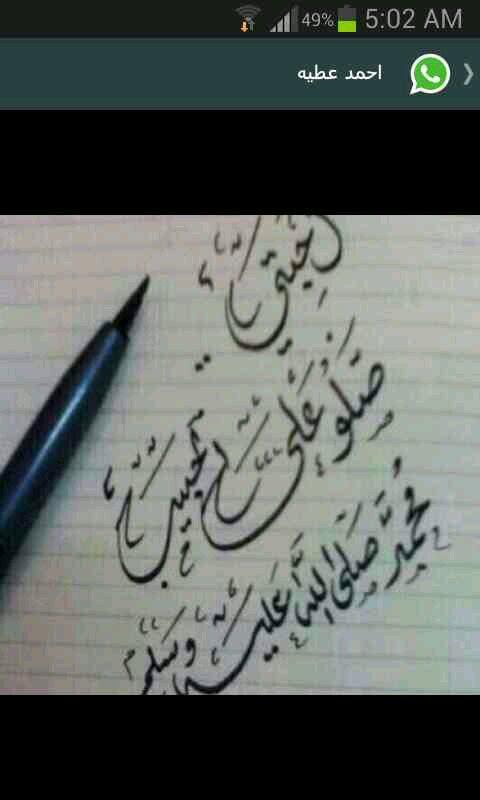 49% 5:02 AM
احمد عطيه
أحبتي
صلو على الحبيب
محمد صلى الله عليه وسلم